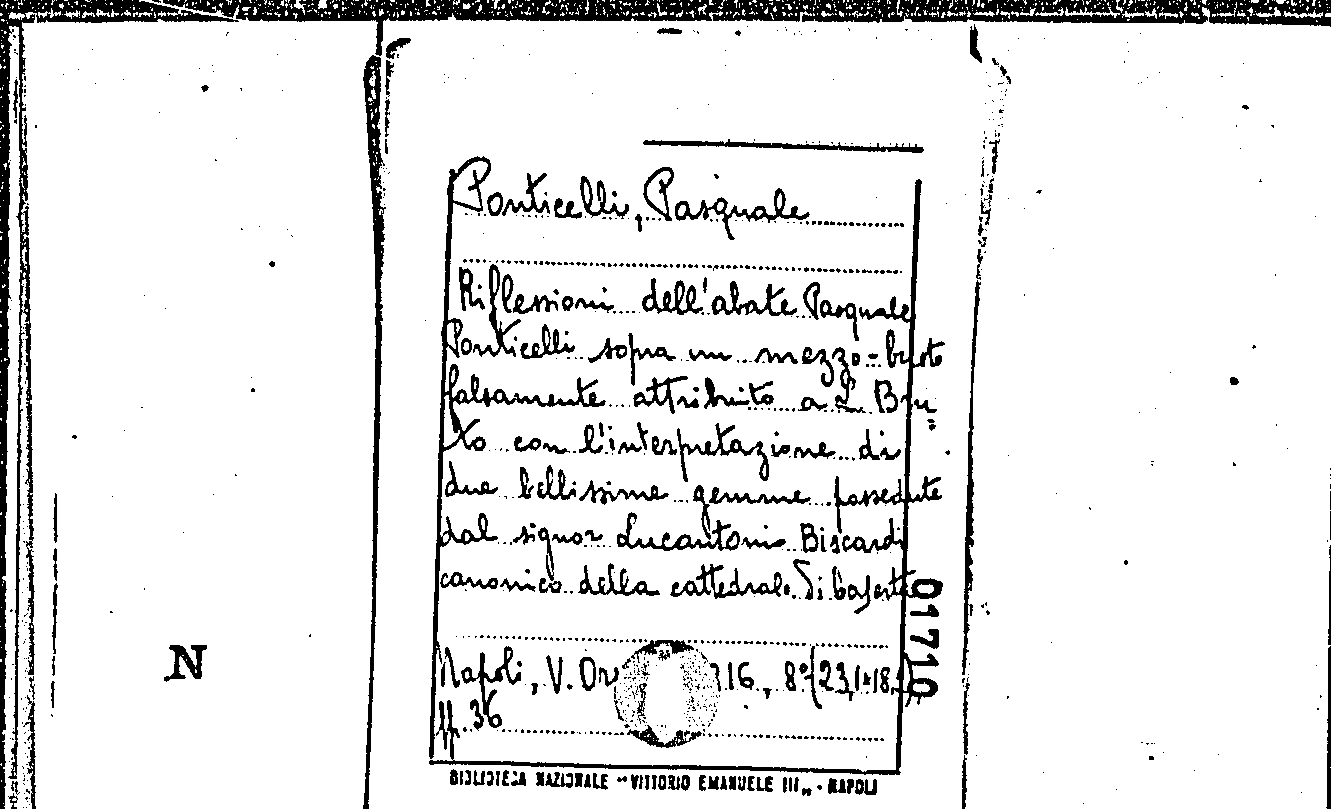 Ponticelli, Pasquale
Riflessioni dell'abate Pasquale
Ponticelli sopra un mezzo-busto
falsamente attribuito a L. Bru=
to con l'interpretazione di
due bellissime gemme possedute
dal signor Lucantonio Biscardi
canonico della cattedrale di Caserta
01710
N
Napoli, V. 16., 8° (23,1×18,
pp. 36
BIBLIOTECA NAZIONALE "VITTORIO EMANUELE III„ - NAPOLI